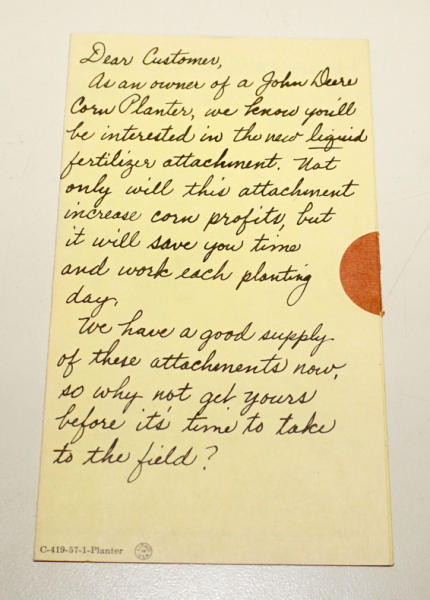 Dear Customer,
As an owner of a John Deere
Corn Planter, we know you'll
be interested in the new liquid
fertilizer attachment. Not
only will this attachment
increase corn profits, but
it will save you time
and work each planting
day.
We have a good supply
of these attachments now,
so why not get yours
before it's time to take
to the field?
C-419-57-1-Planter